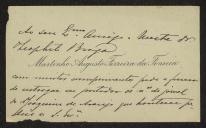 Ao seu Ex.mo Amigo e Mestre Dr.
Theophilo Braga
Martinho Augusto Ferreira da Fonseca
com muitos cumprimentos pede o favor
de entregar ao portador os n.os do jornal
de Joaquim de Araujo que